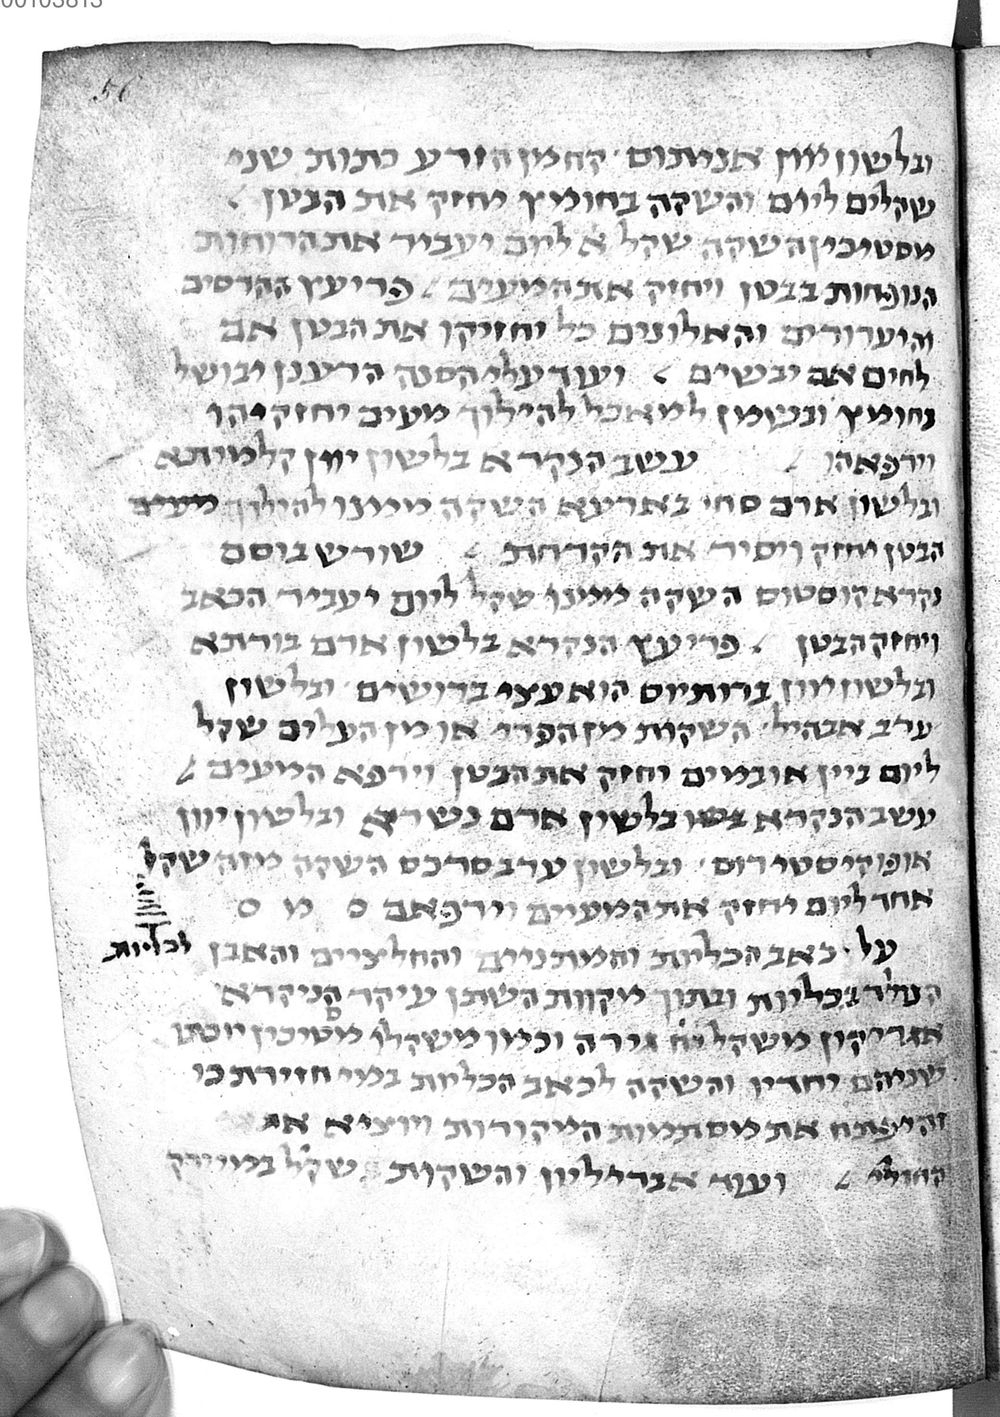 00103813
56
ובלשון יוון אנותום קח מן הזרע כתות שני
שקלים ליום והשקה בחומץ יחזק את הבטן
מסטיכין השקה שקל א ליום יעביר את הרוחות
הנופחות בבטן ויחזק את המעים פרי עץ ההדסים
והיערורים והאלונים כל יחזיקו את הבטן אם
לחים אם יבשים ועוד עלי הסנה הרענן יבושל
בחומץ ובשמן למאכל להילוך מעים יחזקיהו
וירפאהו עשב הנקרא בלשון יוון קלמיתא
ובלשון ארם סחי בארעא השקה ממנו להולך מעים
הבטן יחזק ויסיר את הקדחת שורש בוסם
נקרא קוסטוס השקה ממנו שקל ליום יעביר הכאב
ויחזק הבטן פרי עץ הנקרא בלשון ארם בורתא
ובלשון יוון ברותיוס הוא עצי ברושים ובלשון
ערב אבהיל השקות מן הפרי או מן העלים שקל
ליום ביין או במים יחזק את הבטן וירפא המעים
עשב הנקרא בלשון ארם כשרא ובלשון יוון
אופוקיסטירוס ובלשון ערב סרכס השקה מזה שקל
אחד ליום יחזק את המעיים וירפאם ס מ ס
על כאב הכליות והמתניים והחלציים והאבן
לכליות
הנולד בכליות ובתוך מקוות השתן עיקר הניקרא
אגריקון משקל גירה וכמו משקלו מסטיכין יוכתו
שניהם יחדיו והשקה לכאב הכליות במי חזירת כי
זה יפתח את מסתמות המקורות ויוציא את
החולי ועוד אברילון והשקות שקל במי